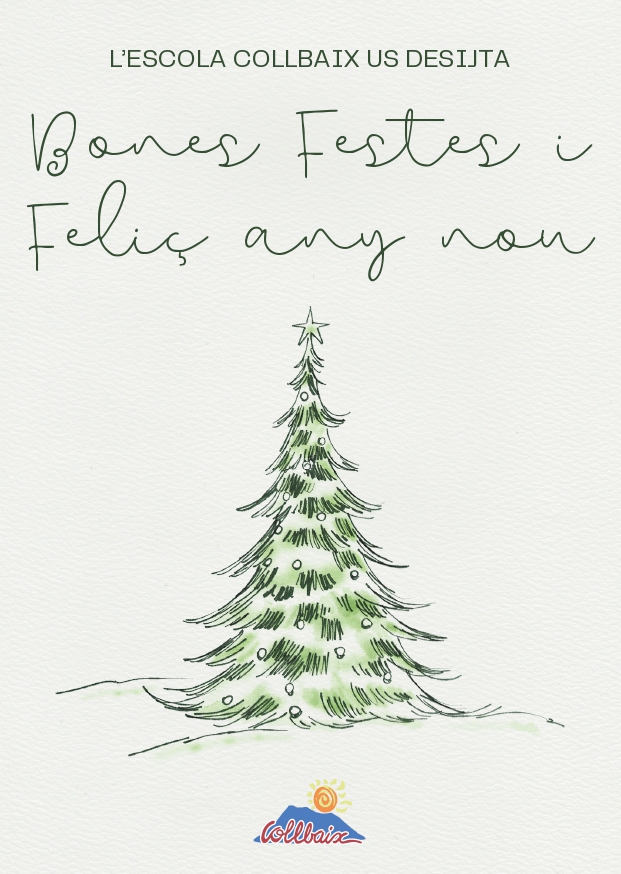 L'ESCOLA COLLBAIX US DESIJTA
Bones Festes i
Feliç any nou
Collbaix